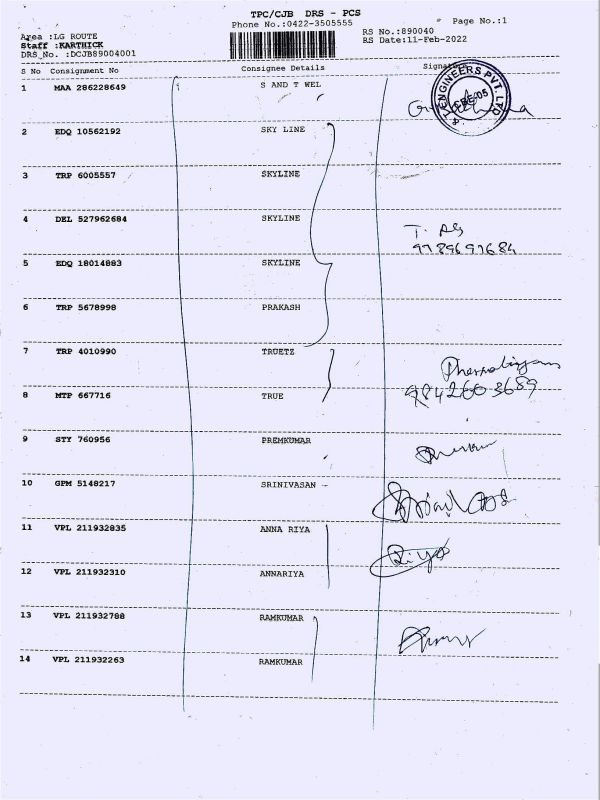 TPC/CJB DRS - PCS
Phone No.:0422-3505555 Page No.:1
Area :LG ROUTE RS No.:890040
Staff :KARTHICK RS Date:11-Feb-2022
DRS No. :DCJB89004001
S No Consignment No Consignee Details Signat
1 MAA 286228649 S AND T WEL
ENGINEERS PVT. LTD
CBE-05
2 EDQ 10562192 SKY LINE
3 TRP 6005557 SKYLINE
4 DEL 527962684 SKYLINE
T.
9789697684
5 EDQ 18014883 SKYLINE
6 TRP 5678998 PRAKASH
7 TRP 4010990 TRUETZ
8 MTP 667716 TRUE
9842603689
9 STY 760956 PREMKUMAR
10 GPM 5148217 SRINIVASAN
11 VPL 211932835 ANNA RIYA
Riya
12 VPL 211932310 ANNARIYA
13 VPL 211932788 RAMKUMAR
14 VPL 211932263 RAMKUMAR